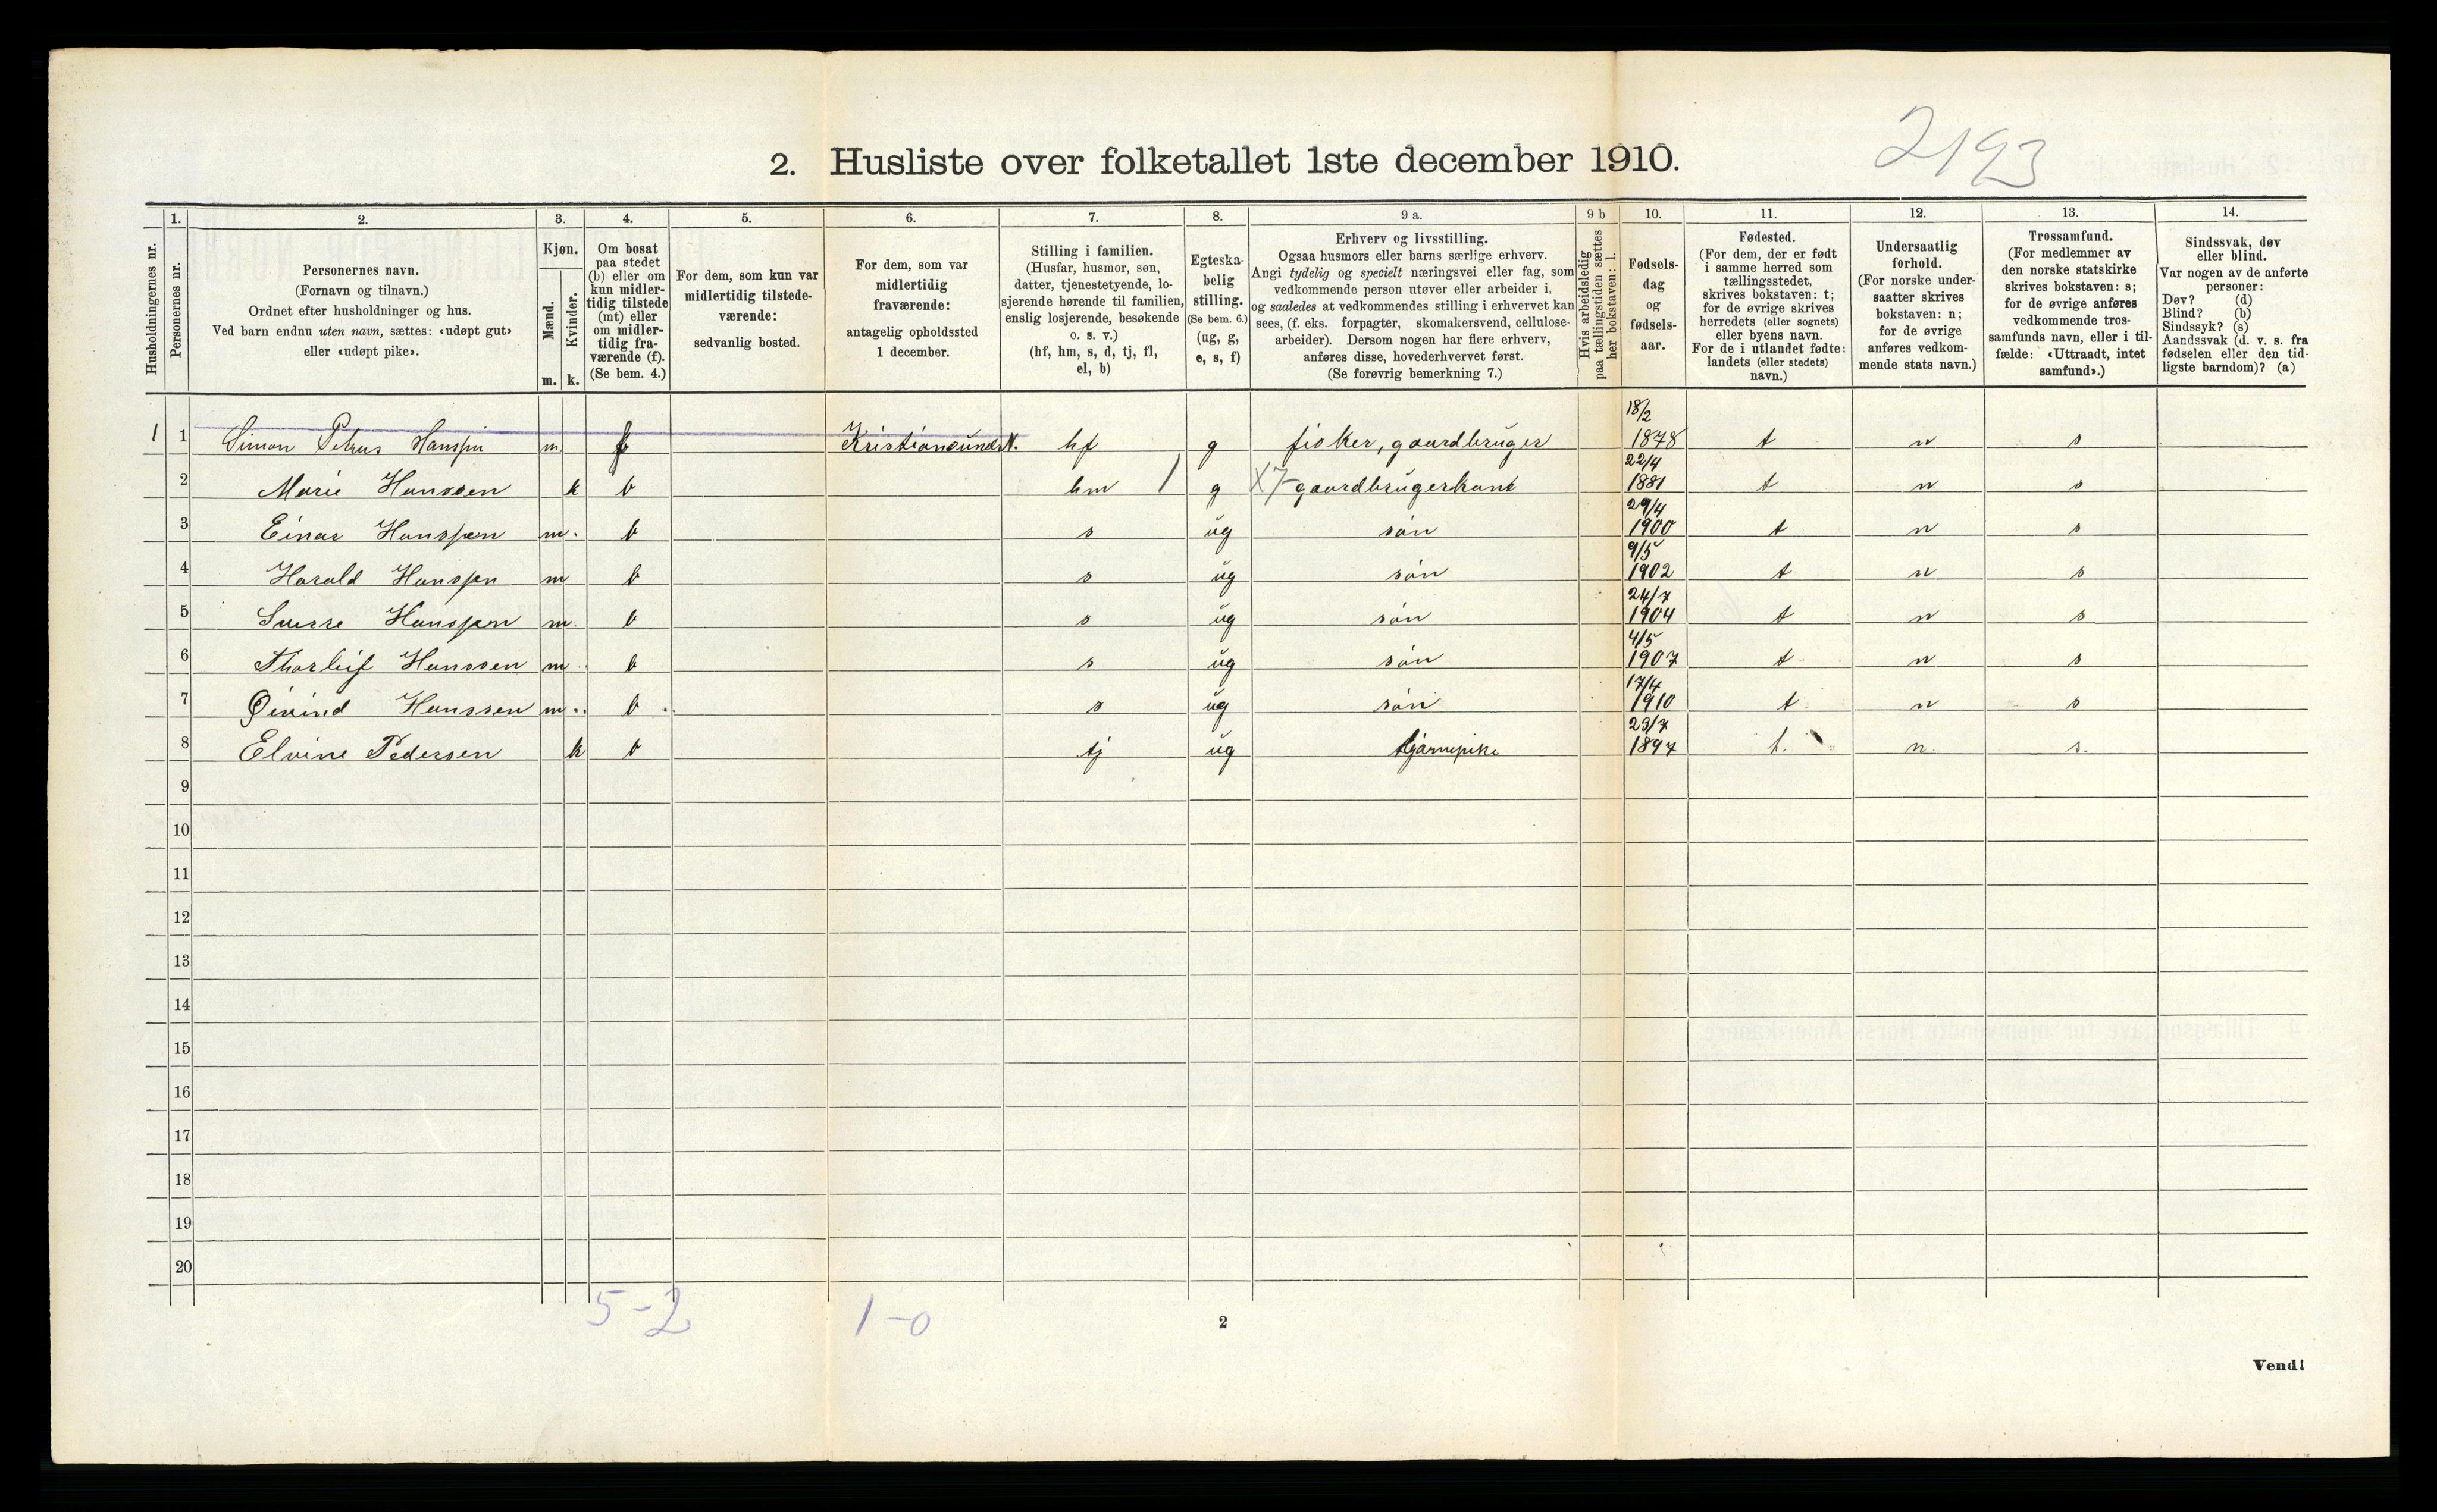 2193
2. Husliste over folketallet 1ste december 1910.
Husholdningernes nr.
1. Personernes nr.
2. Personernes navn.
(Fornavn og tilnavn.)
Ordnet efter husholdninger og hus.
Ved barn endnu uten navn, sættes: «udøpt gut»
eller «udøpt pike».
3. Kjøn.
Mænd. m.
Kvinder. k.
4. Om bosat
paa stedet
(b) eller om
kun midler-
tidig tilstede
(mt) eller
om midler-
tidig fra-
værende (f).
(Se bem. 4.)
5. For dem, som kun var
midlertidig tilstede-
værende:
sedvanlig bosted.
6. For dem, som var
midlertidig
fraværende:
antagelig opholdssted
1 december.
7. Stilling i familien.
(Husfar, husmor, søn,
datter, tjenestetyende, lo-
sjerende hørende til familien,
enslig losjerende, besøkende
o. s. v.)
(hf, hm, s, d, tj, fl,
el, b)
8. Egteska-
belig
stilling.
(Se bem. 6.)
(ug, g,
e, s, f)
9 a. Erhverv og livsstilling.
Ogsaa husmors eller barns særlige erhverv.
Angi tydelig og specielt næringsvei eller fag, som
vedkommende person utøver eller arbeider i,
og saaledes at vedkommendes stilling i erhvervet kan
sees, (f. eks. forpagter, skomakersvend, cellulose-
arbeider). Dersom nogen har flere erhverv,
anføres disse, hovederhvervet først.
(Se forøvrig bemerkning 7.)
9 b Hvis arbeidsledig
paa tællingstiden sættes
her bokstaven: l.
10. Fødsels-
dag
og
fødsels-
aar.
11. Fødested.
(For dem, der er født
i samme herred som
tællingsstedet,
skrives bokstaven: t;
for de øvrige skrives
herredets (eller sognets)
eller byens navn.
For de i utlandet fødte:
landets (eller stedets)
navn.)
12. Undersaatlig
forhold.
(For norske under-
saatter skrives
bokstaven: n;
for de øvrige
anføres vedkom-
mende stats navn.)
13. Trossamfund.
(For medlemmer av
den norske statskirke
skrives bokstaven: s;
for de øvrige anføres
vedkommende tros-
samfunds navn, eller i til-
fælde: «Uttraadt, intet
samfund».)
14. Sindssvak, døv
eller blind.
Var nogen av de anførte
personer:
Døv? (d)
Blind? (b)
Sindssyk? (s)
Aandssvak (d. v. s. fra
fødselen eller den tid-
ligste barndom)? (a)
1 1 Simon Petrus Hanssen m f Kristiansund N. hf g fisker, gaardbruger 18/2 1878 t n s
2 Marie Hanssen k b hm 1 g X7 gaardbrugerkone 22/4 1881 t n s
3 Einar Hanssen m. b s ug søn 29/4 1900 t n s
4 Harald Hanssen m b s ug søn 9/5 1902 t n s
5 Sverre Hanssen m. b s ug søn 24/7 1904 t n s
6 Thorleif Hanssen m b s ug søn 4/5 1907 t n s
7 Øivind Hanssen m. b s ug søn 17/4 1910 t n s
8 Elvine Pedersen k b tj ug tjenepike 23/7 1897 t. n. s.
9
10
11
12
13
14
15
16
17
18
19
20
5-2 1-0
2
Vend!